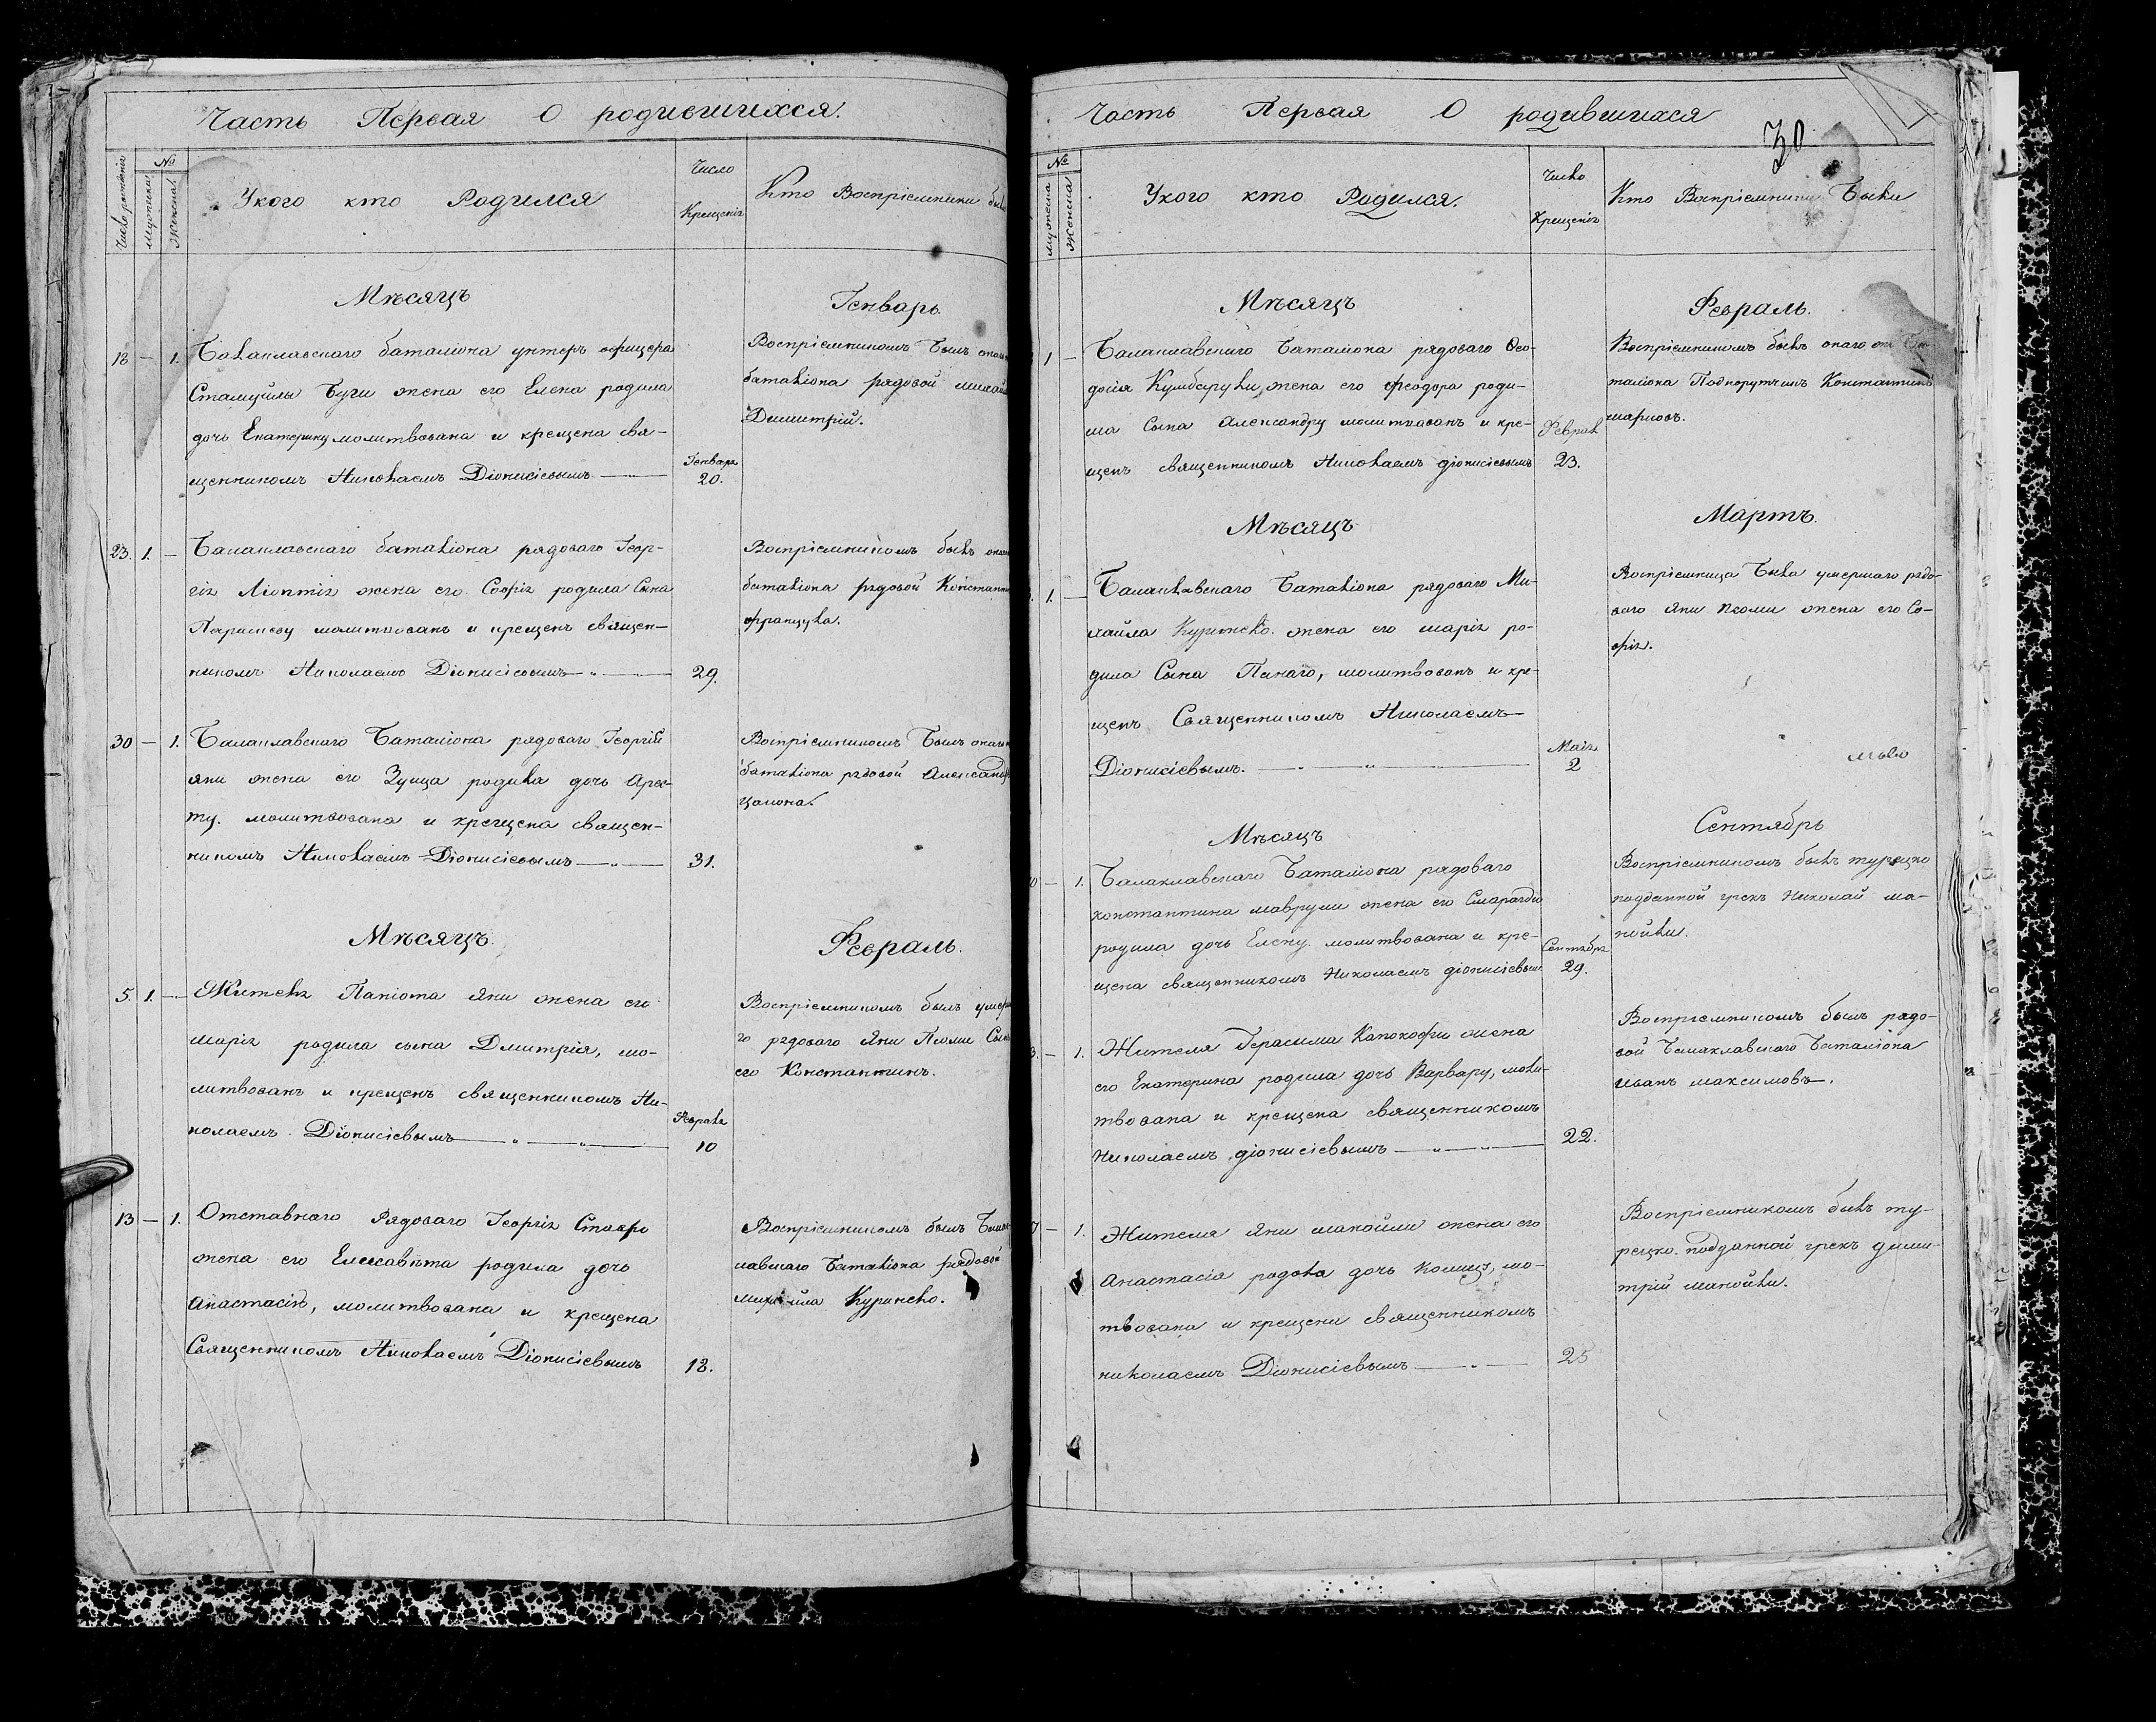 Часть Первая О родившихся.
Число рожденія
№
Мужеска
Женска
Укого кто Родился
Число
Крещенія
Кто Воспріемники бы
Мѣсяцъ
Генварь.
18 — 1. Балаклавскаго баталіона унтеръ офицера
жена его Елена родила
дочь Екатерину молитвована и крещена свя-
щенникомъ Николаемъ Діонисіевымъ
Генваря
20.
Воспріемникомъ Былъ онаго
баталіона рядовой
Димитрій.
23. 1. — Балаклавскаго баталіона рядоваго Геор-
гія жена его Софія родила Сына
молитвованъ и крещенъ священ-
никомъ Николаемъ Діонисіевымъ
29.
Воспріемникомъ былъ онаго
баталіона рядовой Констант
француза.
30 — 1. Балаклавскаго Баталіона рядоваго Георгій
яни жена его Зуица родила дочь Аре-
ту. молитвована и крещена священ-
никомъ Николаемъ Діонисіевымъ
31.
Воспріемникомъ Былъ онаго
баталіона рядовой Александр
Мѣсяцъ.
Февраль.
5. 1. — Жителя Паніота Яни жена его
марія родила сына Дмитрія, мо-
литвованъ и крещенъ священникомъ Ни-
колаемъ Діонисіевымъ
Февраля
10
Воспріемникомъ былъ умерша
го рядоваго Яни Псоми Сынъ
его Константинъ.
13 — 1. Отставнаго Рядоваго Георгія Ставро
жена его Елисавѣта родила дочь
Анастасію, молитвована и крещена
Священникомъ Николаемъ Діонисіевымъ
18.
Воспріемникомъ былъ Балак-
лавскаго Баталіона рядовой
михайла
Часть Первая О родившихся
30
№
мужеска
Женска
Укого кто Родился.
Число
Крещенія
Кто Воспріемники Были
Мѣсяцъ
Февраль.
1 — Балаклавскаго Баталіона рядоваго Ѳео-
досія жена его феодора роди-
ла Сына Александру молитвованъ и кре-
щенъ священникомъ Николаемъ діонисіевымъ
Феврал
23.
Воспріемникомъ былъ онаго Ба-
таліона Подпорутчикъ Константинъ
Мѣсяцъ
Мартъ.
1. — Балаклавскаго Баталіона рядоваго Ми-
хайла жена его марія ро-
дила Сына Панаго, молитвованъ и кре-
щенъ Священникомъ Николаемъ
Діонисіевымъ.
Маія
2
Воспріемница Была умершаго рядо-
ваго яни псоми жена его Со-
фія.
Мѣсяцъ
Сентябрь
1. Балаклавскаго Баталіона рядоваго
константина маврули жена его Смарагда
родила дочь Елену. молитвована и кре-
щена священникомъ Николаемъ діонисіевым
Сентября
29.
Воспріемникомъ былъ турецко
подданной грекъ Николай ма-
нойли.
1. Жителя Герасима жена
его Екатерина родила дочь Варвару, моли-
твована и крещена священникомъ
Николаемъ діонисіевымъ
22.
Воспріемникомъ былъ рядо-
вой Балаклавскаго Баталіона
иванъ максимовъ.
1. Жителя Яни манойли жена его
Анастасія родола дочь мо-
твована и крещени священникомъ
николаемъ Діонисіевымъ
25
Воспріемникомъ былъ ту-
рецко. подданной грекъ дими-
трій манойли.